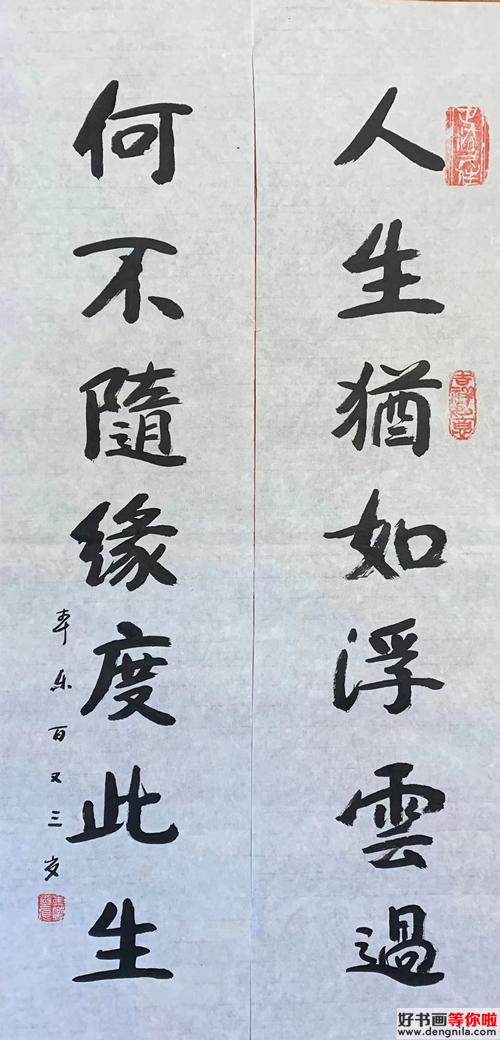 人生猶如浮雲過
何不隨缘度此生
车乐百又三岁
好书画等你啦
www.dengnila.com